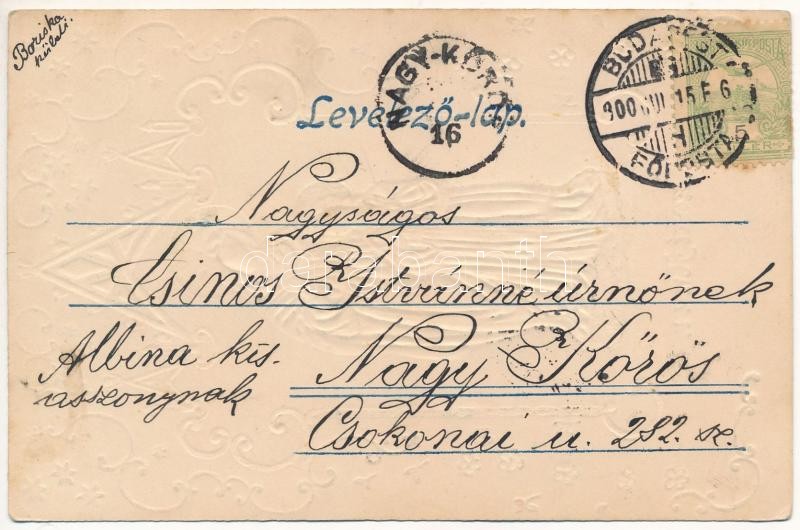 Boriska
küldi.
Levelező-lap.
NAGY-KŐRÖS
16
BUDAPEST
900 15 E 6
FŐPOSTA
5
Nagyságos
Csinos Istvánné úrnőnek
Albina kis-
asszonynak
Nagy Kőrös
Csokonai u. 282. sz.
darabanth